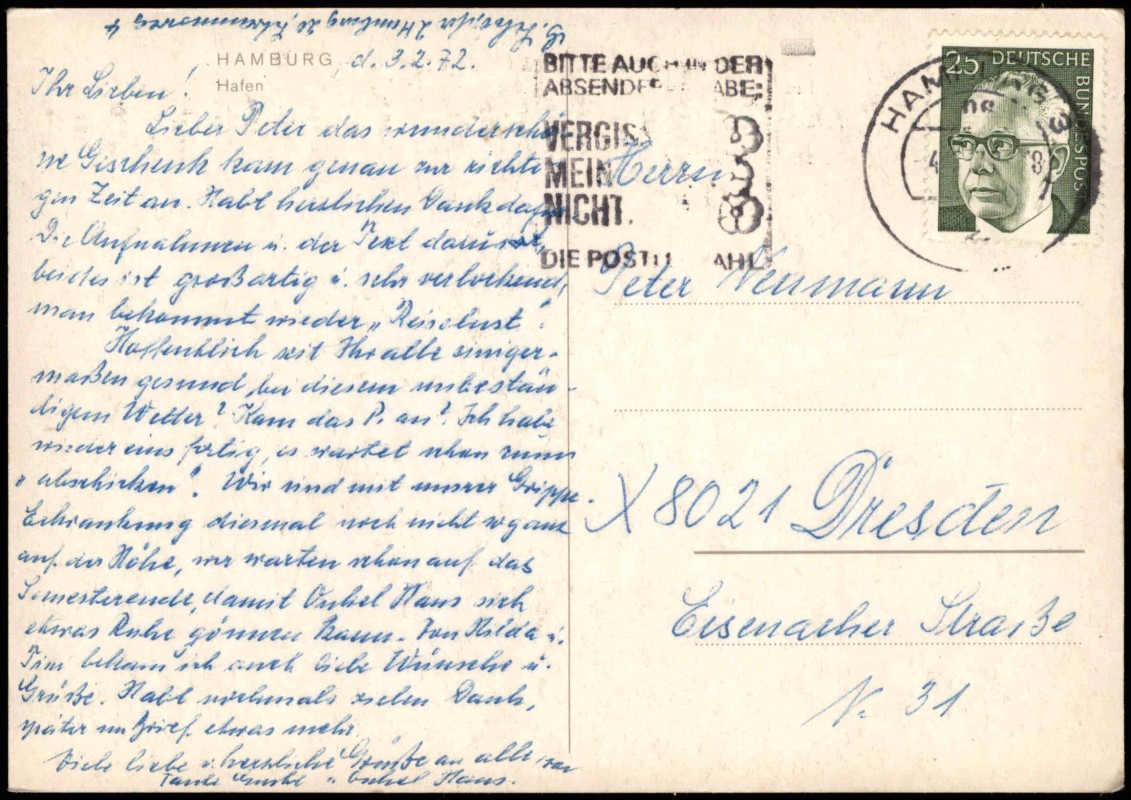 2 Hamburg 20,
HAMBURG, d. 3.2.72.
Hafen
Ihr Lieben!
Lieber Peter das wunderschö-
ne Geschenk kam genau zur richti-
gen Zeit an. Habt herzlichen Dank dafür
Die Aufnahmen u. der Text dazu
beides ist großartig u. sehr verlockend,
man bekommt wieder „Reiselust".
Hoffentlich seit Ihr alle einiger-
maßen gesund, bei diesem unbestän-
digem Wetter? Kam das P. an? Ich habe
wieder eins fertig, es wartet schon zum
„abschicken". Wir sind mit unserer Grippe-
Erkrankung diesmal noch nicht so ganz
auf der Höhe, wir warten schon auf das
Semesterende, damit Onkel Hans sich
etwas Ruhe gönnen kann. Von Hilda u.
Tini bekam ich auch liebe Wünsche u.
Grüße. Habt nochmals vielen Dank,
später im Brief etwas mehr.
Viele liebe u. herzliche Grüße an alle von
Tante u. Onkel Hans.
BITTE AUCH IN DER
ABSENDER ABE:
VERGIS
MEIN
NICHT.
DIE POST AHL
HAMBURG
25
DEUTSCHE BUNDESPOST
Herrn
Peter Neumann
X 8021 Dresden
Eisenacher Straße
N. 31